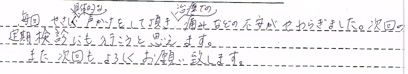 具体的な 治療での
毎回、やさしく声かけをして頂き 痛みなどの不安がやわらぎました。次回の
定期検診にも行こうと思えます。
また次回もよろしくお願い致します。